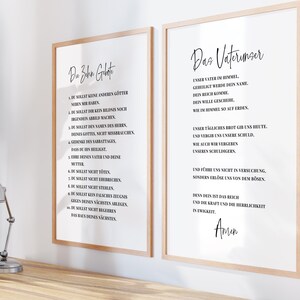 Die Zehn Gebote
1. DU SOLLST KEINE ANDEREN GÖTTER
NEBEN MIR HABEN.
2. DU SOLLST DIR KEIN BILDNIS NOCH
IRGENDEIN ABBILD MACHEN.
3. DU SOLLST DEN NAMEN DES HERRN,
DEINES GOTTES, NICHT MISSBRAUCHEN.
4. GEDENKE DES SABBATTAGES,
DASS DU IHN HEILIGST.
5. EHRE DEINEN VATER UND DEINE
MUTTER.
6. DU SOLLST NICHT TÖTEN.
7. DU SOLLST NICHT EHEBRECHEN.
8. DU SOLLST NICHT STEHLEN.
9. DU SOLLST KEIN FALSCHES ZEUGNIS
GEGEN DEINEN NÄCHSTEN ABLEGEN.
10. DU SOLLST NICHT BEGEHREN
WAS DEINES NÄCHSTEN.
Das Vaterunser
UNSER VATER IM HIMMEL.
GEHEILIGT WERDE DEIN NAME.
DEIN REICH KOMME.
DEIN WILLE GESCHEHE,
WIE IM HIMMEL SO AUF ERDEN.
UNSER TÄGLICHES BROT GIB UNS HEUTE.
UND VERGIB UNS UNSERE SCHULD,
WIE AUCH WIR VERGEBEN
UNSEREN SCHULDIGERN.
UND FÜHRE UNS NICHT IN VERSUCHUNG,
SONDERN ERLÖSE UNS VON DEM BÖSEN.
DENN DEIN IST DAS REICH
UND DIE KRAFT UND DIE HERRLICHKEIT
IN EWIGKEIT.
Amen